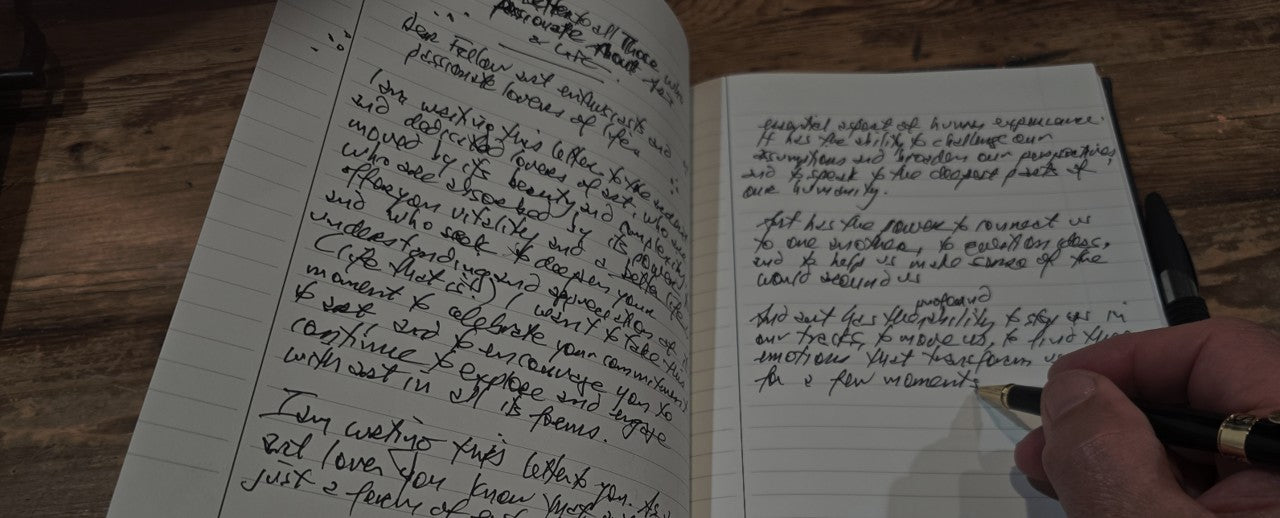 Letter to all Those who
passionate About Art
& Life.
Dear Fellow art enthusiasts and
passionate lovers of life,
I am writing this letter to the
and dedicated lovers of art, who are
moved by its beauty and complexity,
who are absorbed by its power to
offer you vitality and a better life,
and who seek to deepen your
understanding and appreciation of it
(life that is!) I want to take this
moment to celebrate your commitment
to art and to encourage you to
continue to explore and engage
with art in all its forms.
I am writing this letter to you. As
art lover you know that
just a form of
essential aspect of human experience.
It has the ability to challenge our
assumptions and broaden our perspectives,
and to speak to the deepest parts of
our humanity.
Art has the power to connect us
to one another, to
and to help us make sense of the
world around us
profound
And art has the ability to stop us in
our tracks, to move us, to find
emotions that transform
for a few moments